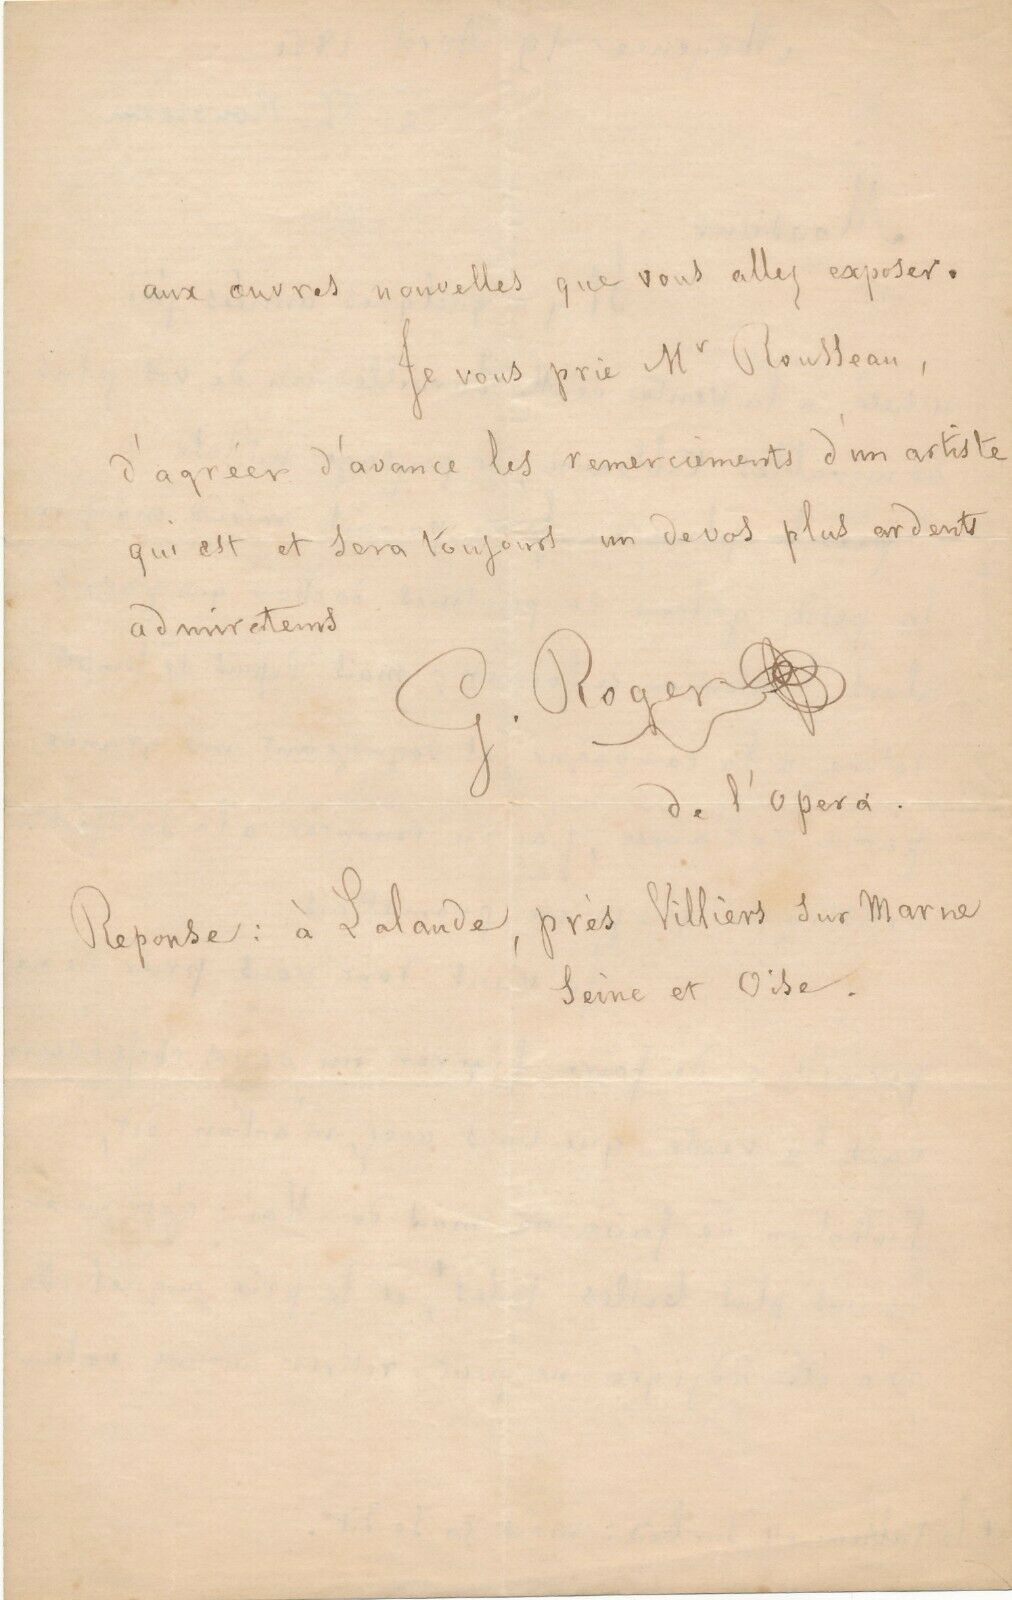 aux œuvres nouvelles que vous allez exposer.
Je vous prie Mr Rousseau,
d'agréer d'avance les remerciements d'un artiste
qui est et sera toujours un de vos plus ardents
admirateurs
G. Roger
de l'Opera.
Reponse: à Lalande, près Villiers sur Marne
Seine et Oise.